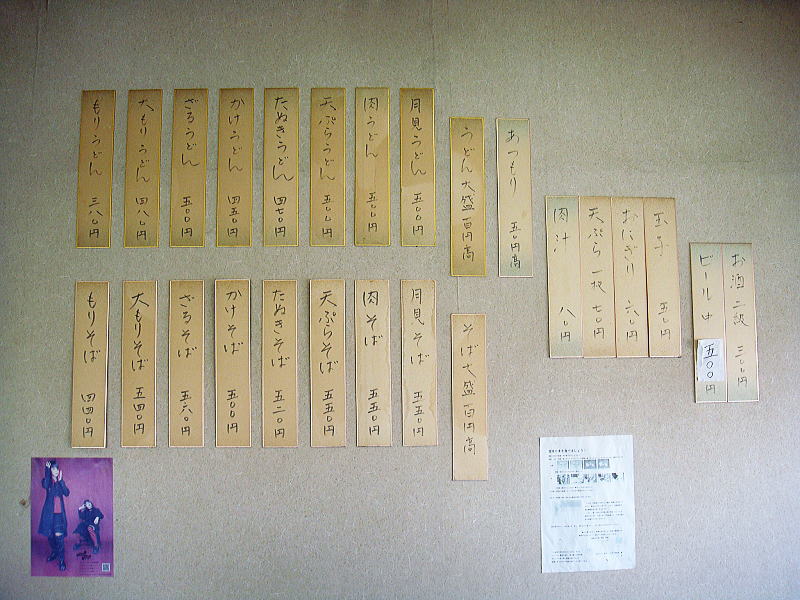 もりうどん 三八〇円
大もりうどん 四八〇円
ざるうどん 五〇〇円
かけうどん 四五〇円
たぬきうどん 四七〇円
天ぷらうどん 五〇〇円
肉うどん 五〇〇円
月見うどん 五〇〇円
うどん大盛百円高
あつもり 五〇円高
もりそば 四四〇円
大もりそば 五四〇円
ざるそば 五六〇円
かけそば 五〇〇円
たぬきそば 五二〇円
天ぷらそば 五五〇円
肉そば 五五〇円
月見そば 五五〇円
そば大盛百円高
肉汁 八〇円
天ぷら一枚 七〇円
おにぎり 六〇円
玉子 五〇円
ビール中 五〇〇円
お酒二級 三〇〇円